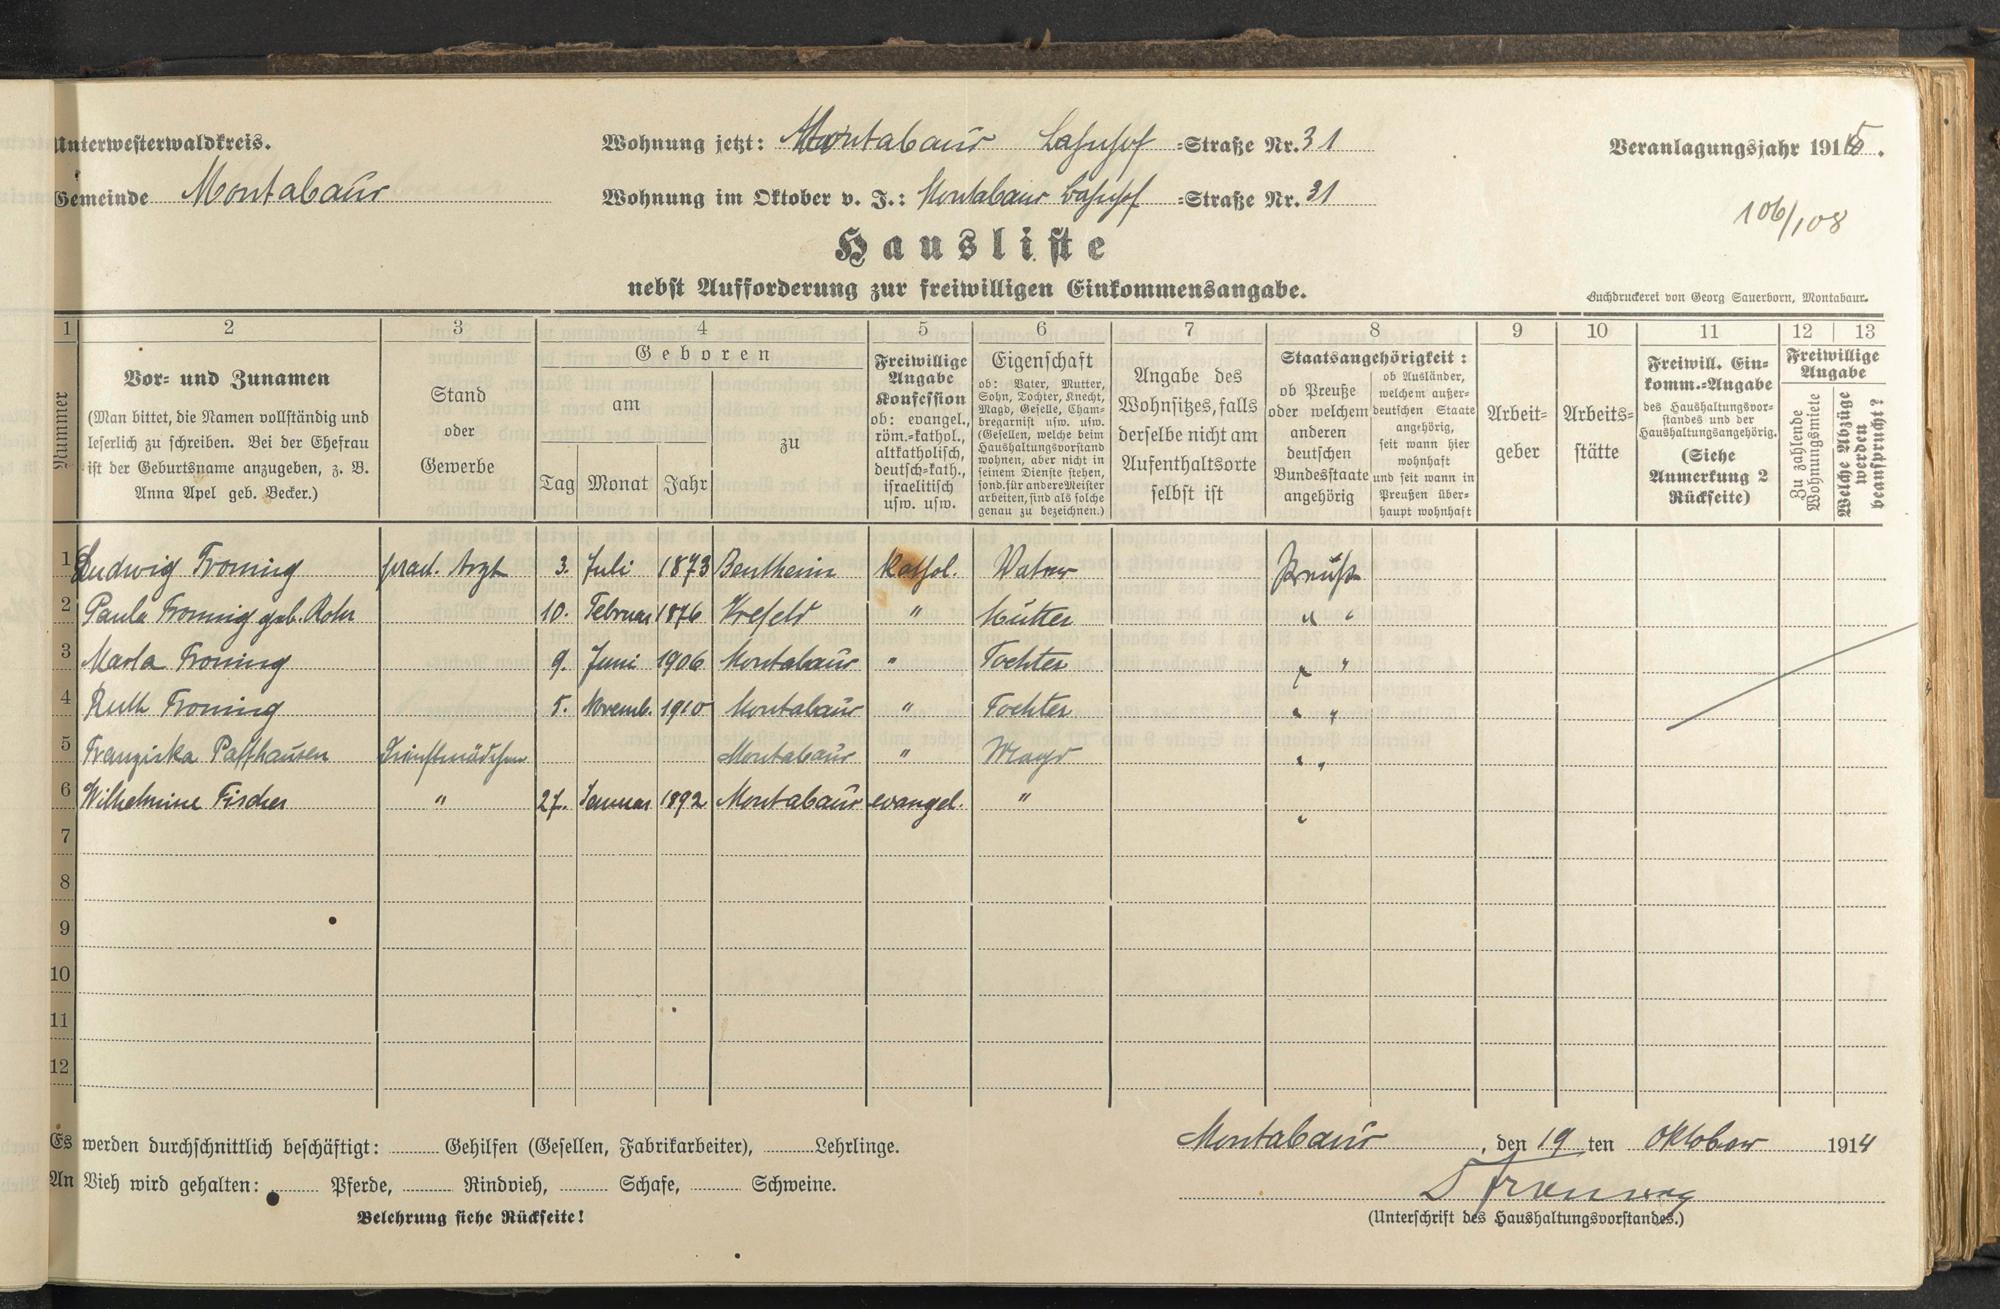 Unterwesterwaldkreis. Wohnung jetzt: Montabaur Bahnhof =Straße Nr. 31 Veranlagungsjahr 1915.
Gemeinde Montabaur Wohnung im Oktober v. J.: Montabaur Bahnhof =Straße Nr. 31
106/108
Hausliste
nebst Aufforderung zur freiwilligen Einkommensangabe.
Buchdruckerei von Georg Sauerborn, Montabaur.
1 2 3 4 5 6 7 8 9 10 11 12 13
Nummer
Vor- und Zunamen
(Man bittet, die Namen vollständig und
leserlich zu schreiben. Bei der Ehefrau
ist der Geburtsname anzugeben, z. B.
Anna Apel geb. Becker.)
Stand
oder
Gewerbe
Geboren
am
Tag Monat Jahr
zu
Freiwillige
Angabe
Konfession
ob: evangel.,
röm.-kathol.,
altkatholisch,
deutsch-kath.,
israelitisch
usw. usw.
Eigenschaft
ob: Vater, Mutter,
Sohn, Tochter, Knecht,
Magd, Geselle, Cham-
bregarnist usw. usw.
(Gesellen, welche beim
Haushaltungsvorstand
wohnen, aber nicht in
seinem Dienste stehen,
sond. für andere Meister
arbeiten, sind als solche
genau zu bezeichnen.)
Angabe des
Wohnsitzes, falls
derselbe nicht am
Aufenthaltsorte
selbst ist
Staatsangehörigkeit:
ob Preuße
oder welchem
anderen
deutschen
Bundesstaate
angehörig
ob Ausländer,
welchem außer-
deutschen Staate
angehörig,
seit wann hier
wohnhaft
und seit wann in
Preußen über-
haupt wohnhaft
Arbeit-
geber
Arbeits-
stätte
Freiwill. Ein-
komm.-Angabe
des Haushaltungsvor-
standes und der
Haushaltungsangehörig.
(Siehe
Anmerkung 2
Rückseite)
Freiwillige
Angabe
Zu zahlende
Wohnungsmiete
Welche Abzüge
werden
beansprucht?
1 Ludwig Froning prad. Arzt 3. Juli 1873 Bentheim Kathol. Vater Preuße
2 Paula Froning geb. Rohr 10. Februar 1876 Krefeld " Mutter " "
3 Marla Froning 9. Juni 1906 Montabaur " Tochter " "
4 Ruth Froning 5. Novemb. 1910 Montabaur " Tochter " "
5 Franziska Paffhausen Dienstmädchen Montabaur " Magd " "
6 Wilhelmine Fischer " 27. Januar 1892 Montabaur evangel. " "
7
8
9
10
11
12
Es werden durchschnittlich beschäftigt: Gehilfen (Gesellen, Fabrikarbeiter), Lehrlinge.
An Vieh wird gehalten: Pferde, Rindvieh, Schafe, Schweine.
Belehrung siehe Rückseite!
Montabaur, den 19 ten Oktober 1914
Froning
(Unterschrift des Haushaltungsvorstandes.)